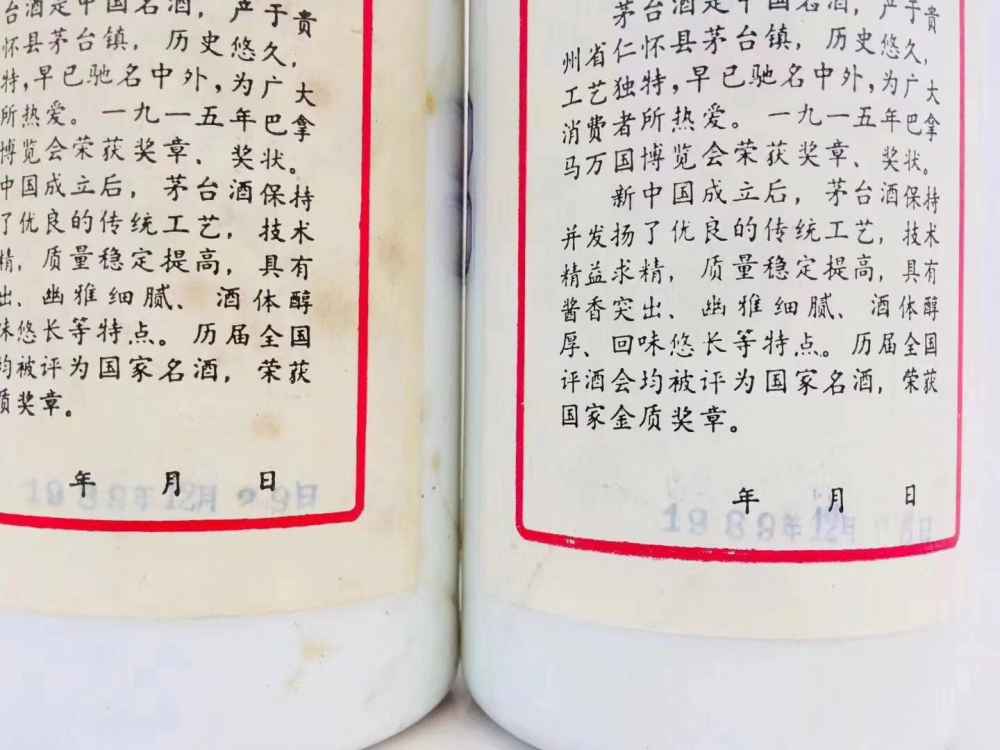 台酒是中国名酒，产于贵
怀县茅台镇，历史悠久，
特，早已驰名中外，为广大
所热爱。一九一五年巴拿
博览会荣获奖章、奖状。
中国成立后，茅台酒保持
了优良的传统工艺，技术
精，质量稳定提高，具有
出、幽雅细腻、酒体醇
味悠长等特点。历届全国
均被评为国家名酒，荣获
质奖章。
年 月 日
1989年12月29日
茅台酒是中国名酒，产于贵
州省仁怀县茅台镇，历史悠久，
工艺独特，早已驰名中外，为广大
消费者所热爱。一九一五年巴拿
马万国博览会荣获奖章、奖状。
新中国成立后，茅台酒保持
并发扬了优良的传统工艺，技术
精益求精，质量稳定提高，具有
酱香突出、幽雅细腻、酒体醇
厚、回味悠长等特点。历届全国
评酒会均被评为国家名酒，荣获
国家金质奖章。
年 月 日
1989年12月